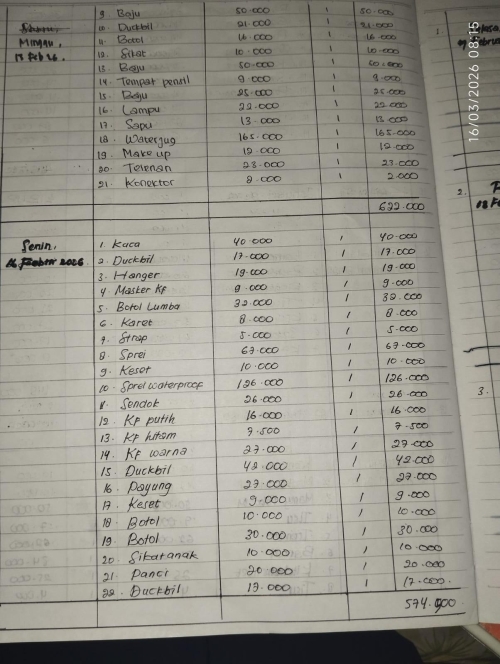 9. Baju 50.000 1 50.000
10. Duckbil 21.000 1 21.000
Minggu, 11. Botol 16.000 1 16.000
15 Feb 26. 12. Sikat 10.000 1 10.000
13. Baju 50.000 1
14. Tempat pensil 9.000 1 9.000
15. Baju 25.000 1 25.000
16. Lampu 22.000 1 22.000
17. Sapu 13.000 1 13.000
18. Waterjug 165.000 1 165.000
19. Make up 12.000 1 12.000
20. Telenan 23.000 1 23.000
21. Konektor 2.000 1 2.000
622.000
Senin, 1. Kaca 40.000 1 40.000
2026 2. Duckbil 17.000 1 17.000
3. Hanger 19.000 1 19.000
4. Masker Kf 9.000 1 9.000
5. Botol Lumba 32.000 1 32.000
6. Karet 8.000 1 8.000
7. Strap 5.000 1 5.000
8. Sprei 67.000 1 67.000
9. Keset 10.000 1 10.000
10. Sprei waterproof 126.000 1 126.000
11. Sendok 26.000 1 26.000
12. Kf putih 16.000 1 16.000
13. Kf hitam 7.500 1 7.500
14. Kf warna 27.000 1 27.000
15. Duckbil 42.000 1 42.000
16. Payung 27.000 1 27.000
17. Keset 9.000 1 9.000
18. Botol 10.000 1 10.000
19. Botol 30.000 1 30.000
20. Sikat anak 10.000 1 10.000
21. Panci 20.000 1 20.000
22. Duckbil 17.000 1 17.000
1.
2.
3.
16/03/2026 08:15